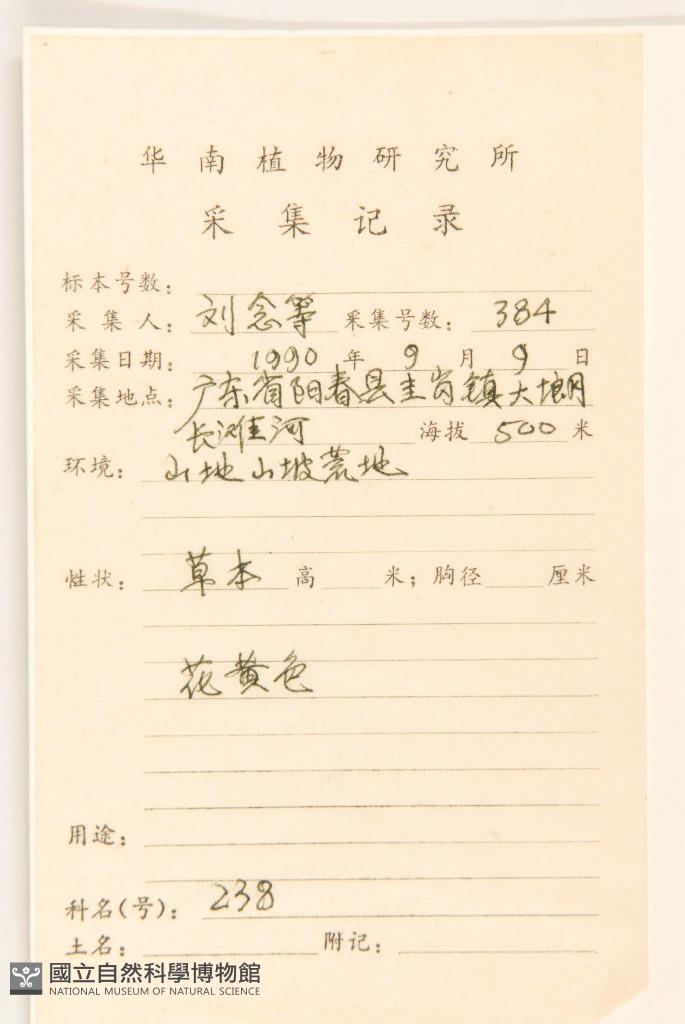 华南植物研究所
采集记录
标本号数：
采集人：刘念等 采集号数：384
采集日期：1990年9月9日
采集地点：广东省阳春县圭岗镇大塱
长滩河 海拔 500 米
环境：山地山坡荒地
性状：草本 高 米；胸径 厘米
花黄色
用途：
科名(号)：238
土名： 附记：
國立自然科學博物館
NATIONAL MUSEUM OF NATURAL SCIENCE